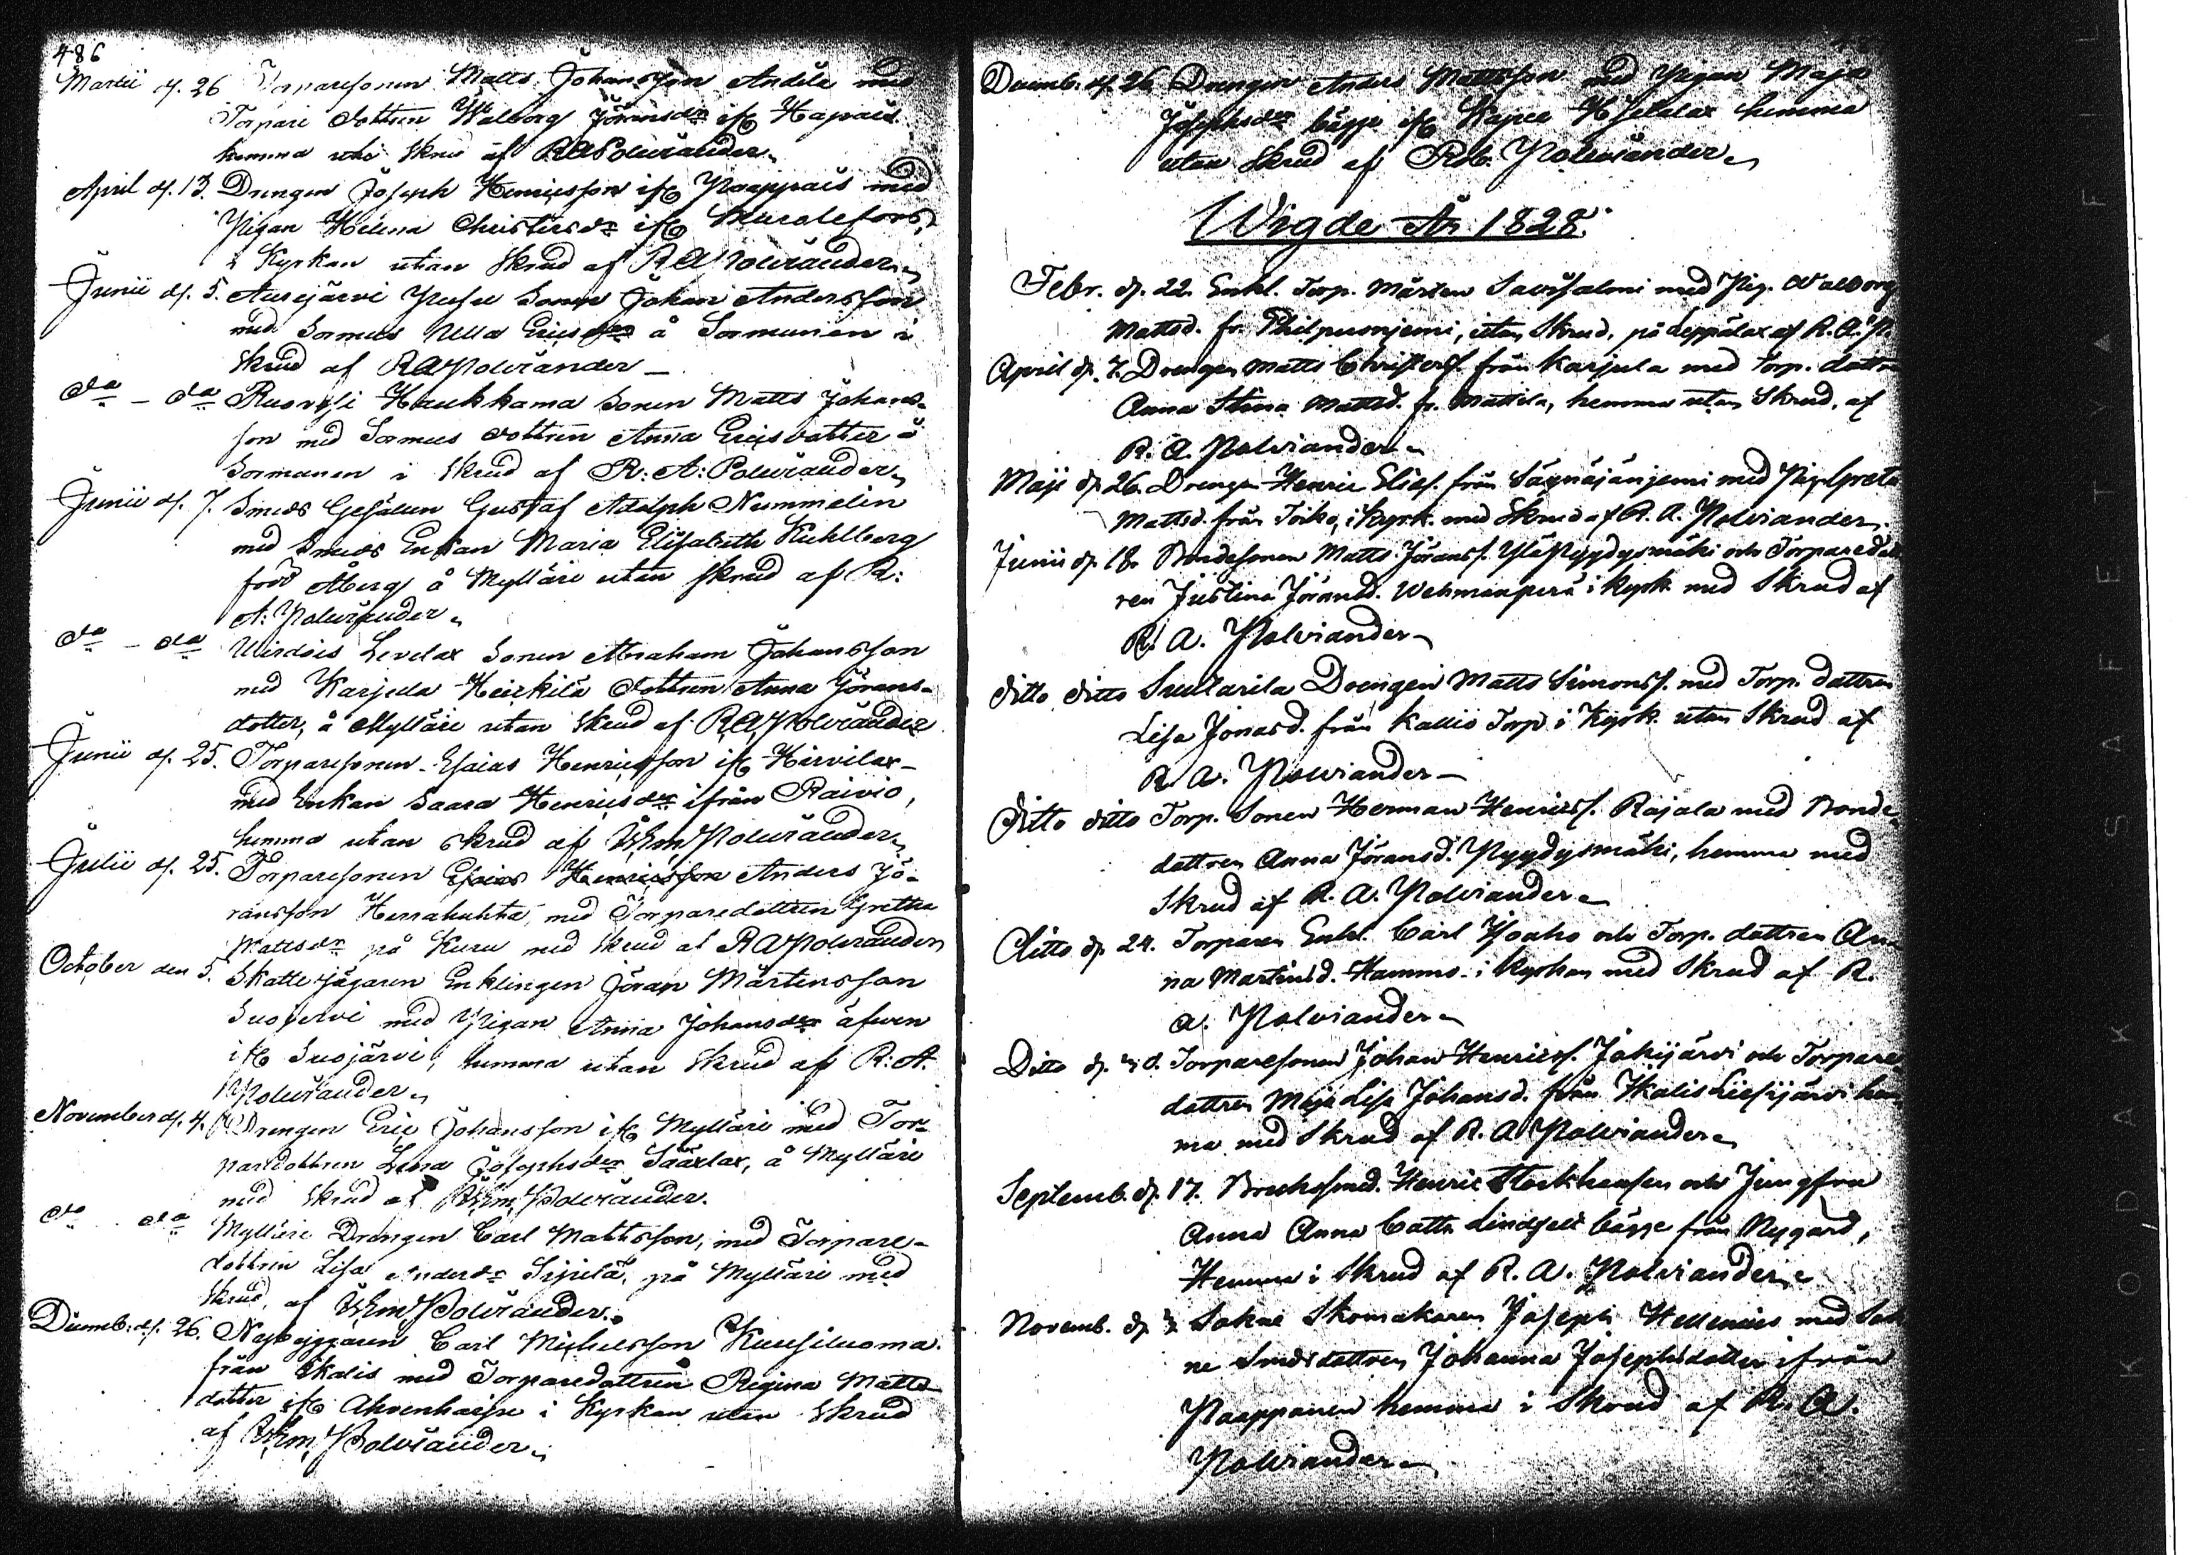 486
Martii d. 26 Torparesonen Matts Johansson Andila med
Torpare dottren Walborg Jöransdr ifr Hapais
hemma utan Skrud af R A Polviander
April d. 13. Drengen Joseph Henricsson ifr Poappais med
Pigan Helena Christersdr ifr
i Kyrkan utan Skrud af R A Polviander
Junii d. 5. Aurejärvi Sonen Johan Andersson
med Sormuis Ulla Ericsdr å Sormunen i
Skrud af R A Polviander
do - do Ruovesi Haukkama Sonen Matts Johans-
son med Sormuis dottren Anna Ericsdotter å
Sormanen i Skrud af R: A: Polviander
Junii d. 7. Smeds Gesällen Gustaf Adolph Nummelin
med Smeds Enkan Maria Elisabeth Kuhlberg
född Åberg å Mylläri utan skrud af R:
A: Polviander
do - do Wirdois Levelax Sonen Abraham Johansson
med Karjula Heickilä dottren Anna Jörans-
dotter, å Mylläri utan Skrud af R A Polviander
Junii d. 25. Torparesonen Esaias Henricsson ifr Hirvilax
med Enkan Saara Henricsdr ifrån Raivio,
hemma utan skrud af Polviander
Julii d. 25. Torparesonen Esaias Henricsson Anders Jö-
ransson Herrakuhta, med Torparedottren Gretha
Mattsdr på Kuru med Skrud af R A Polviander
October den 5. Skattefägaren Enklingen Jöran Mårtensson
Suojervi med Pigan Anna Johansdr äfven
ifr Suojärvi, hemma utan Skrud af R: A.
Polviander
November d. 4. Drengen Eric Johansson ifr Mylläri med Tor-
paredottren Lena Josephsdr Sääxlax, å Mylläri
med Skrud af Polviander.
do do Mylläri Drengen Carl Mattsson, med Torpare-
dottren Lisa Andersdr Sipilä, på Mylläri med
Skrud, af Polviander.
Decemb. d. 26. Nybyggaren Carl Michelsson Kuusiluoma
från Ikalis med Torparedottren Regina Matts-
dotter ifr Ahvenharju i Kyrkan utan Skrud
af Polviander
Decemb. d. 26 Drengen Anders Mattsson med Pigan Maja
Josephsdr bägge ifr hemma
utan Skrud af Rob. Polviander
Wigde År 1828.
Febr. d. 22. Enkl. Torp. Mårten Savisalmi med Pig. Walborg
Mattsd. fr. Philpusnjemi, utan Skrud, på Leppälax af R. A. P.
April d. 7. Drengen Matts Christers. från Karjula med Torp. dottr
Anna Stina Mattsd. fr. Mattila, hemma utan Skrud, af
R. A. Polviander
Maji d. 26. Drengen Henric Elias. från Säynäjänjemi med Pig. Greta
Mattsd. från Toiko, i kyrk. med Skrud af R. A. Polviander
Junii d. 18. Bondesonen Matts Jöranss. Ylä Pyydysmäki och Torparedott
ren Justina Jöransd. Wehmanperä i kyrk. med Skrud af
R. A. Polviander
ditto ditto Drengen Matts Simonss. med Torp. dottren
Lisa Jonasd. från Kallio Torp i Kyrk. utan Skrud af
R. A. Polviander
ditto ditto Torp. Sonen Herman Henricss. Rajala med Bonde-
dottren Anna Jöransd. Pyydysmäki, hemma med
Skrud af R. A. Polviander
Ditto d. 24. Torparen Enkl. Carl Joaho och Torp. dottren An-
na Martinsd. Hammo i kyrkan med Skrud af R.
A. Polviander
Ditto d. Torparesonen Johan Henricss. Jakijärvi och Torpare
dottren Maja Lisa Johansd. från Ikalis Liesijärvi hem-
ma med Skrud af R. A. Polviander
Septemb. d. 17. Brukssmed. Henric Stockhausen och Jungfru
Anna Anna Catta Lindstedt bägge från Nygård,
Hemma i Skrud af R. A. Polviander
Novemb. d. Sokne Skomakaren Joseph Hellenius med Sok
ne Smedsdottren Johanna Josephsdotter ifrån
Poappanen hemma i Skrud af R. A.
Polviander
KODAK SAFETY FIL